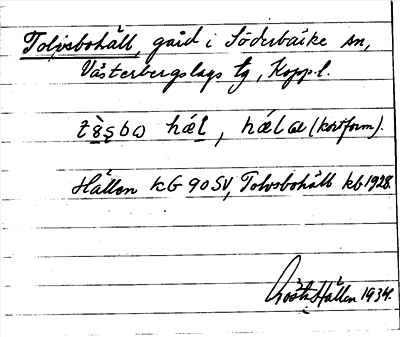 Tolvsbohäll, gård i Söderbärke sn,
Västerbergslags tg, Koppl.
hǽl, hǽla (kortform).
Hällen kG 90 SV, Tolvsbohäll kb 1928.
Gösta Hällen 1934.